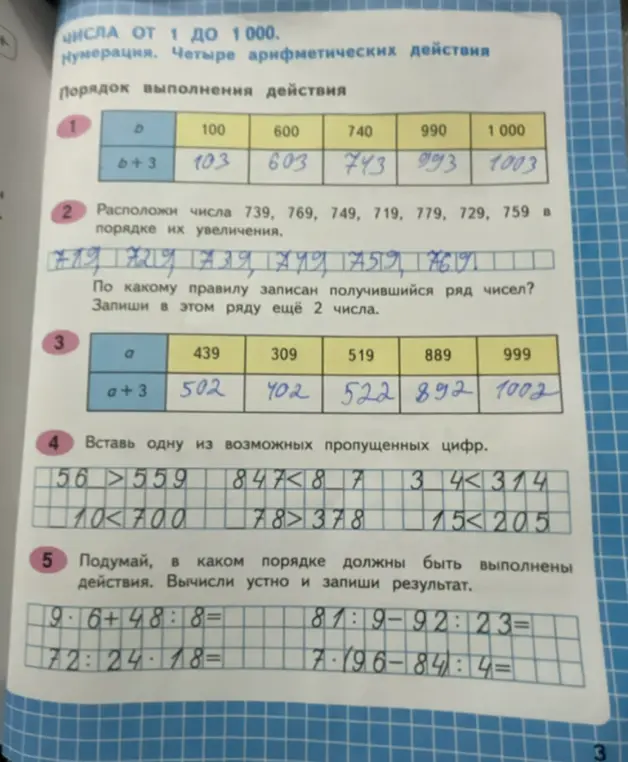 ЧИСЛА ОТ 1 ДО 1 000.
Нумерация. Четыре арифметических действия
Порядок выполнения действия
1 b 100 600 740 990 1 000
b + 3 103 603 743 993 1003
2 Расположи числа 739, 769, 749, 719, 779, 729, 759 в
порядке их увеличения.
719, 729, 739, 749, 759, 769.
По какому правилу записан получившийся ряд чисел?
Запиши в этом ряду ещё 2 числа.
3 a 439 309 519 889 999
a + 3 502 402 522 892 1002
4 Вставь одну из возможных пропущенных цифр.
56_>559 847<8_7 3_4<314
_10<700 _78>378 _15<205
5 Подумай, в каком порядке должны быть выполнены
действия. Вычисли устно и запиши результат.
9·6+48:8= 81:9-92:23=
72:24·18= 7·(96-84):4=
3